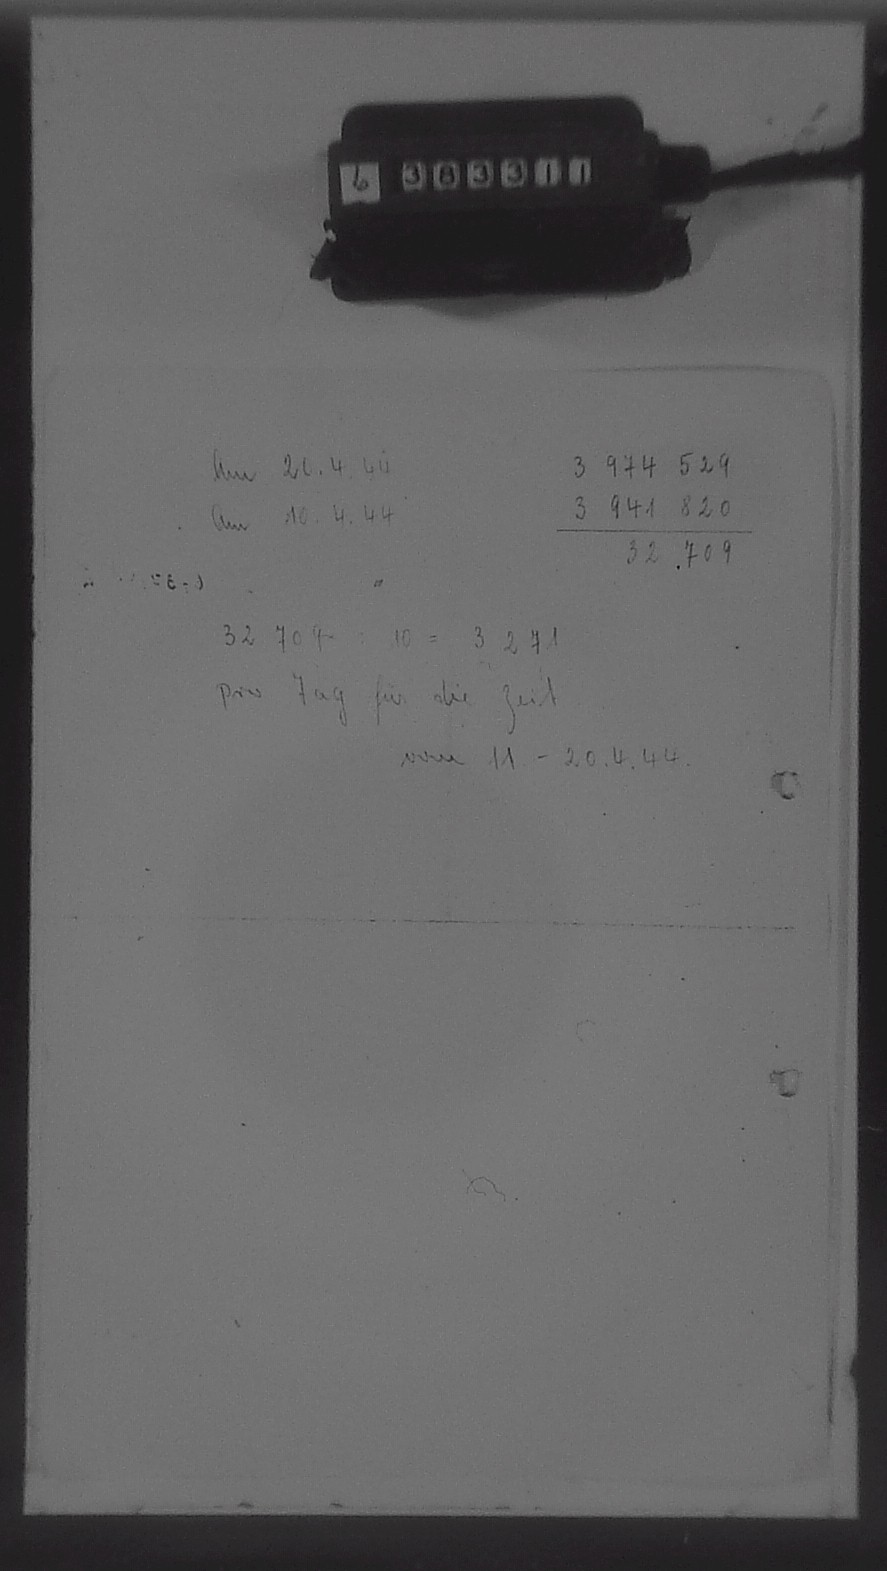 6 383311
Am 20.4.44 3 974 529
Am 10.4.44 3 941 820
32.709
32 709 : 10 = 3 271
pro Tag für die Zeit
vom 11 - 20.4.44.